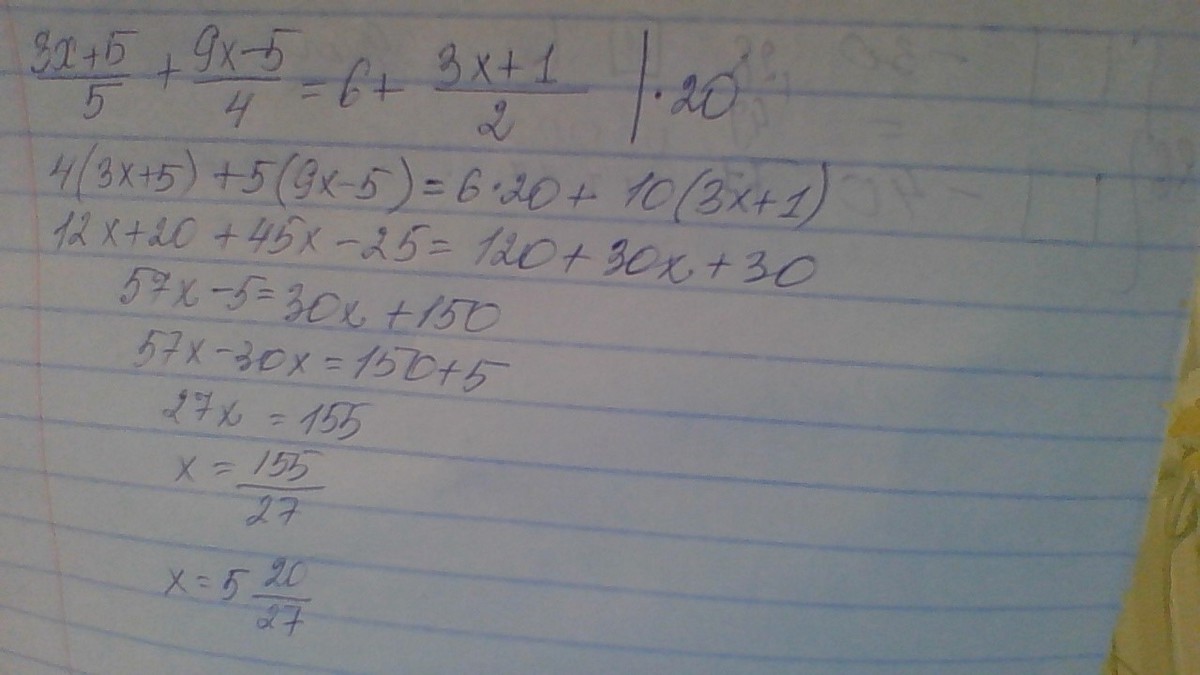 (3x+5)/5 + (9x-5)/4 = 6 + (3x+1)/2 | · 20
4(3x+5) + 5(9x-5) = 6·20 + 10(3x+1)
12x+20+45x-25 = 120+30x+30
57x-5=30x+150
57x-30x=150+5
27x = 155
x = 155/27
x = 5 20/27